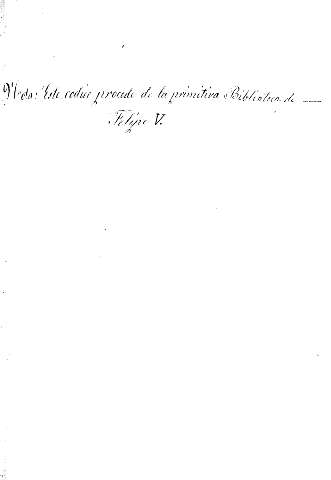 Nota: Este codice procede de la primitiva Biblioteca de
Felipe V.